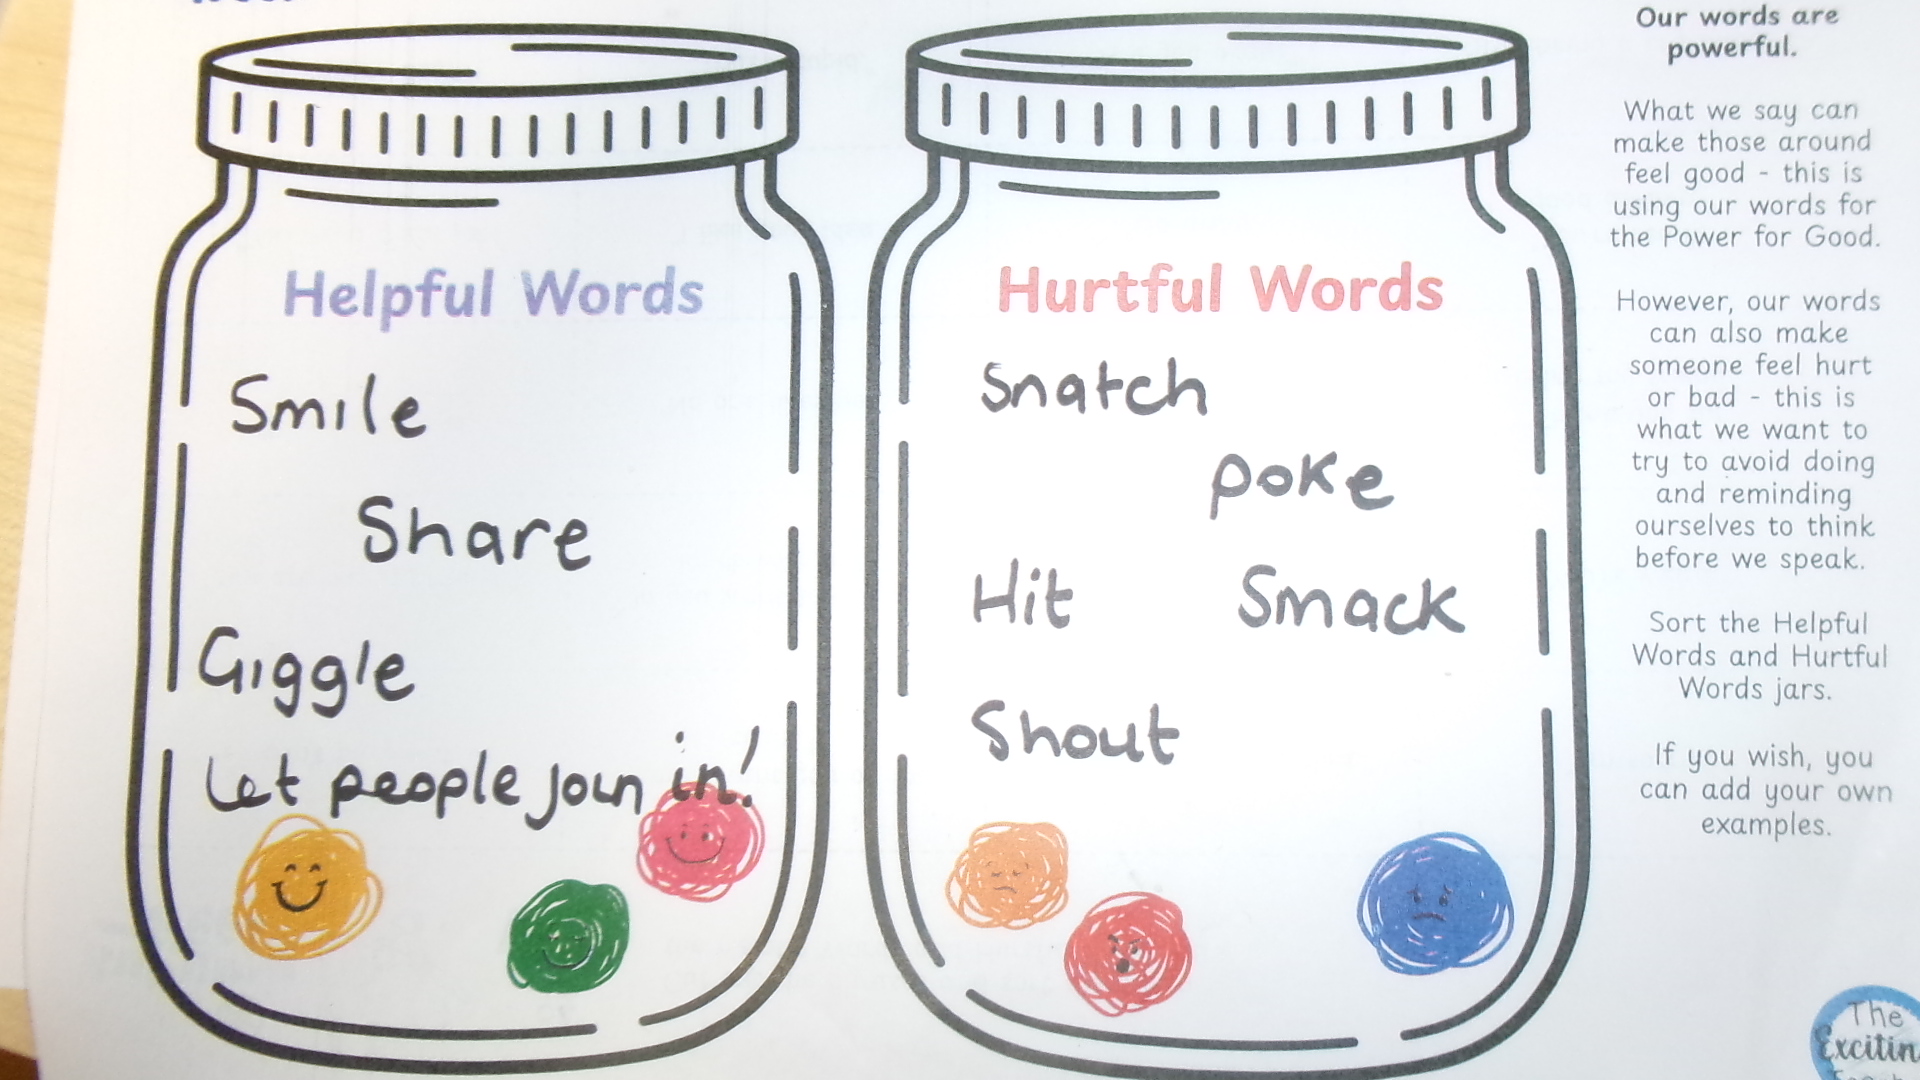 Helpful Words
Smile
Share
Giggle
Let people join in!
Hurtful Words
Snatch
poke
Hit Smack
Shout
Our words are
powerful.
What we say can
make those around
feel good - this is
using our words for
the Power for Good.
However, our words
can also make
someone feel hurt
or bad - this is
what we want to
try to avoid doing
and reminding
ourselves to think
before we speak.
Sort the Helpful
Words and Hurtful
Words jars.
If you wish, you
can add your own
examples.
The